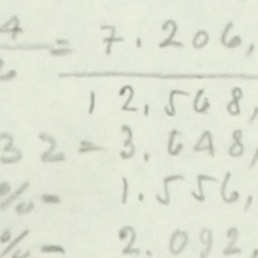 4 = 7.206,
12.568,
32 = 3.648,
%- 1.556,
%- 2.092,